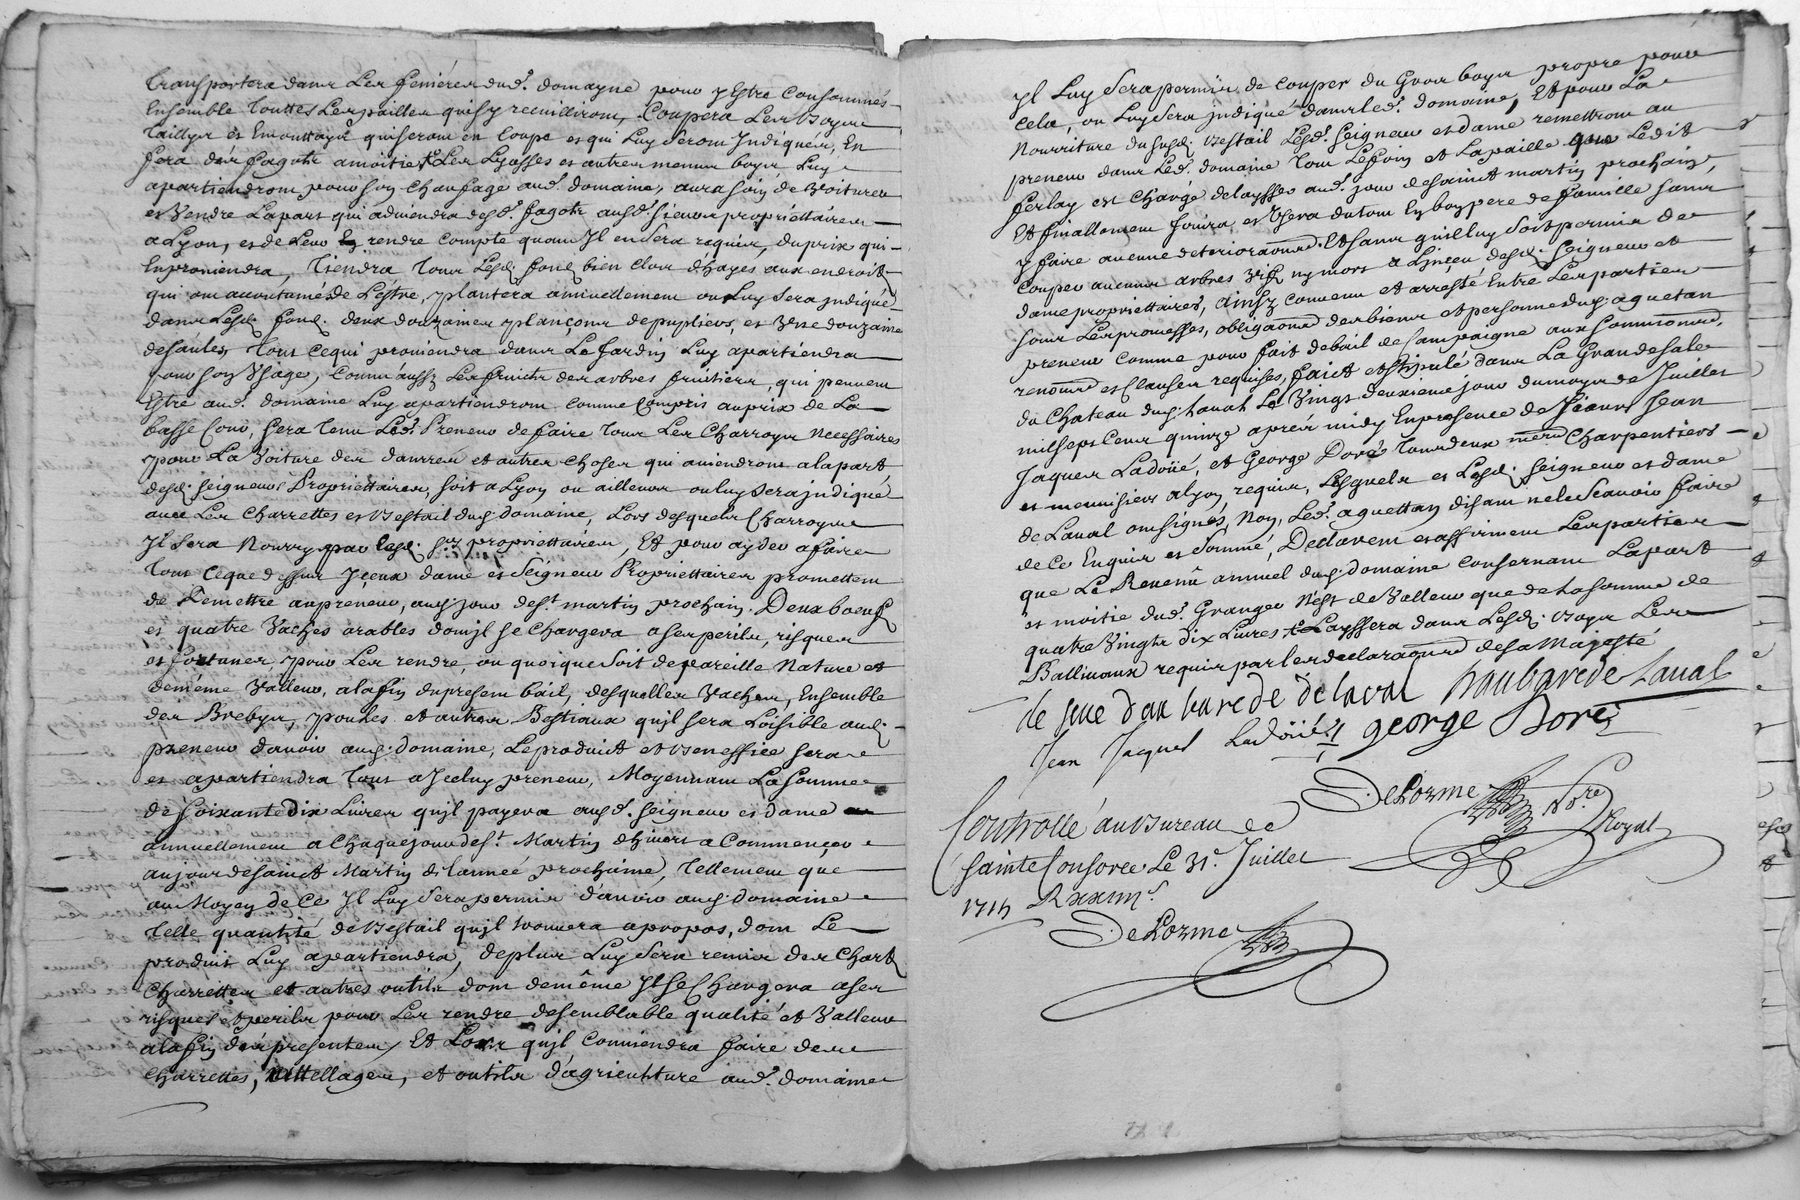 transportera dans Les feniéres dud.t domayne pour y Estre Consommés
Ensemble Touttes Les pailles quj sy receuilliront, Coupera Les Boyes
Taillys et Emouttayes quj seront en Coupe et quj Luy seront Jndiqués, En
fera des fagots amoitie Les Lyasses et autres menus boyes Luy
apartiendront pour son Chauffage aud.t domaine, aura soin de Voiturer
et Vendre Lapart quj adviendra desd.ts fagots ausd.ts sieurs propriettaires
a Lyon, et de Leur rendre Compte quant Jl en sera requis, du prix quj
En proviendra, Tiendra Tous Lesd. fond. bien Clos d'hayes aux endroits
quj ont accoutumé de L'Estre, y plantera annuellement ou Luy sera jndiqué
dans Lesd. fond. deux douzaines plançons de pupliers, et Vne douzaine
de saules, Tout Ce quj proviendra dans Le Jardin Luy apartiendra
pour son Vsage, Comm'aussy Les fruicts des arbres fruitiers, quj peuvent
Estre aud.t domaine Luy apartiendront Comme Compris au prix de La
basse Cour, sera tenu Led.t Preneur de faire Tous Les Charroys Necessaires
pour La Voiture des danrées et autres Choses qui aviendront alapart
desd. seigneurs Propriettaires, soit a Lyon ou ailleurs ou luy sera jndiqué
avec Les Charrettes et Bestail dud. domaine, Lors desquels Charroys
Jl sera Nourry par lesd. s.rs propriettaires, Et pour ayder a faire
Tout Ce que dessus Jceux dame et Seigneur Propriettaires promettent
de Remettre au preneur, aud. jour de s.t martin prochain. Deux boeufs
et quatre Vaches arables dont jl se Chargera a ses perils, risques
et fortunes, pour Les rendre, ou quoique soit de pareille Nature et
de méme Valleur, a la fin du present bail, desquelles Vaches, Ensemble
des Brebys, poules et autres Bestiaux qujl sera Loisible aud.
preneur d'avoir aud. domaine, Le produict et Beneffice sera
et apartiendra Tout a Jceluy preneur, Moyennant La Somme
de soixante dix Livres qujl payera ausd.t seigneur et dame
annuellement a Chaque jour de s.t Martin d'hivert a Commencer
au jour de sainct Martin de l'année prochaine, Tellement que
au Moyen de Ce Jl Luy sera permis d'avoir aud. domaine
Telle quantité de Bestail qujl trouvera apropos, dont Le
produit Luy apartiendra, de plus Luy sera remis des Chart
Charrettes et autres outils dont de méme Jl se Chargera a ses
risques et perils pour Les rendre de semblable qualité et Valleur
a la fin des presentes, Et Lors qujl Conviendra faire des
Charrettes, attellages, et outils d'agriculture aud.t domaine
Jl Luy sera permis de Couper du Gros boys propre pour
cela, ou Luy sera jndiqué dans led.t domaine, Et pour La
Nourriture du susd. Bestail Lesd.t seigneur et dame remettront au
preneur dans Led.t domaine Tout Le foin et La paille que Ledit
ferlay est Chargé de laysser aud.t jour de sainct martin prochain,
Et finallement Jouira et Vsera du tout En bon pere de famille sans
y faire aucune deterioraõn, Et sans quil luy soit permis de
Couper aucuns arbres Vifs ny morts a L'jnceu desd. seigneur et
dame propriettaires, Ainsy Convenu et arresté Entre Les parties
sous Les promesses, obligaõns des biens et personne dud. aguetan
preneur Comme pour fait de bail de Campaigne aux soumissions,
renonõns et Clauses requises, faict et stipulé dans La Grande sale
du Chateau dud. Laual Le Vingt deuxieme jour du moys de Juillet
mil sept Cent quinze aprés midy En presence de sieurs Jean
Jaques Ladoüé, et George Doré Tous deux m.res Charpentiers
et menuisiers a Lyon, requis, Lesquels et Lesd. seigneur et dame
de Laual ont signés, Non, Led.t aguettan disant ne le Scavoir faire
de Ce Enquis et Sommé, Declarent et affirment Les parties
que Le Revenû annuel dud. domaine Consernant Lapart
et moitié dud.t Granger N'est de Valleur que de La somme de
quatre Vingt dix Livres Layssera dans Lesd. boys Les
Balliveaux requis par les declaraõns de sa Majesté
de laval haubarede Laual
Jean Jaques Ladöüé george Dore
DeLorme No.re
Royal
Controllé au Bureau de
sainte Consorce Le 31.e Juillet
1715
DeLorme